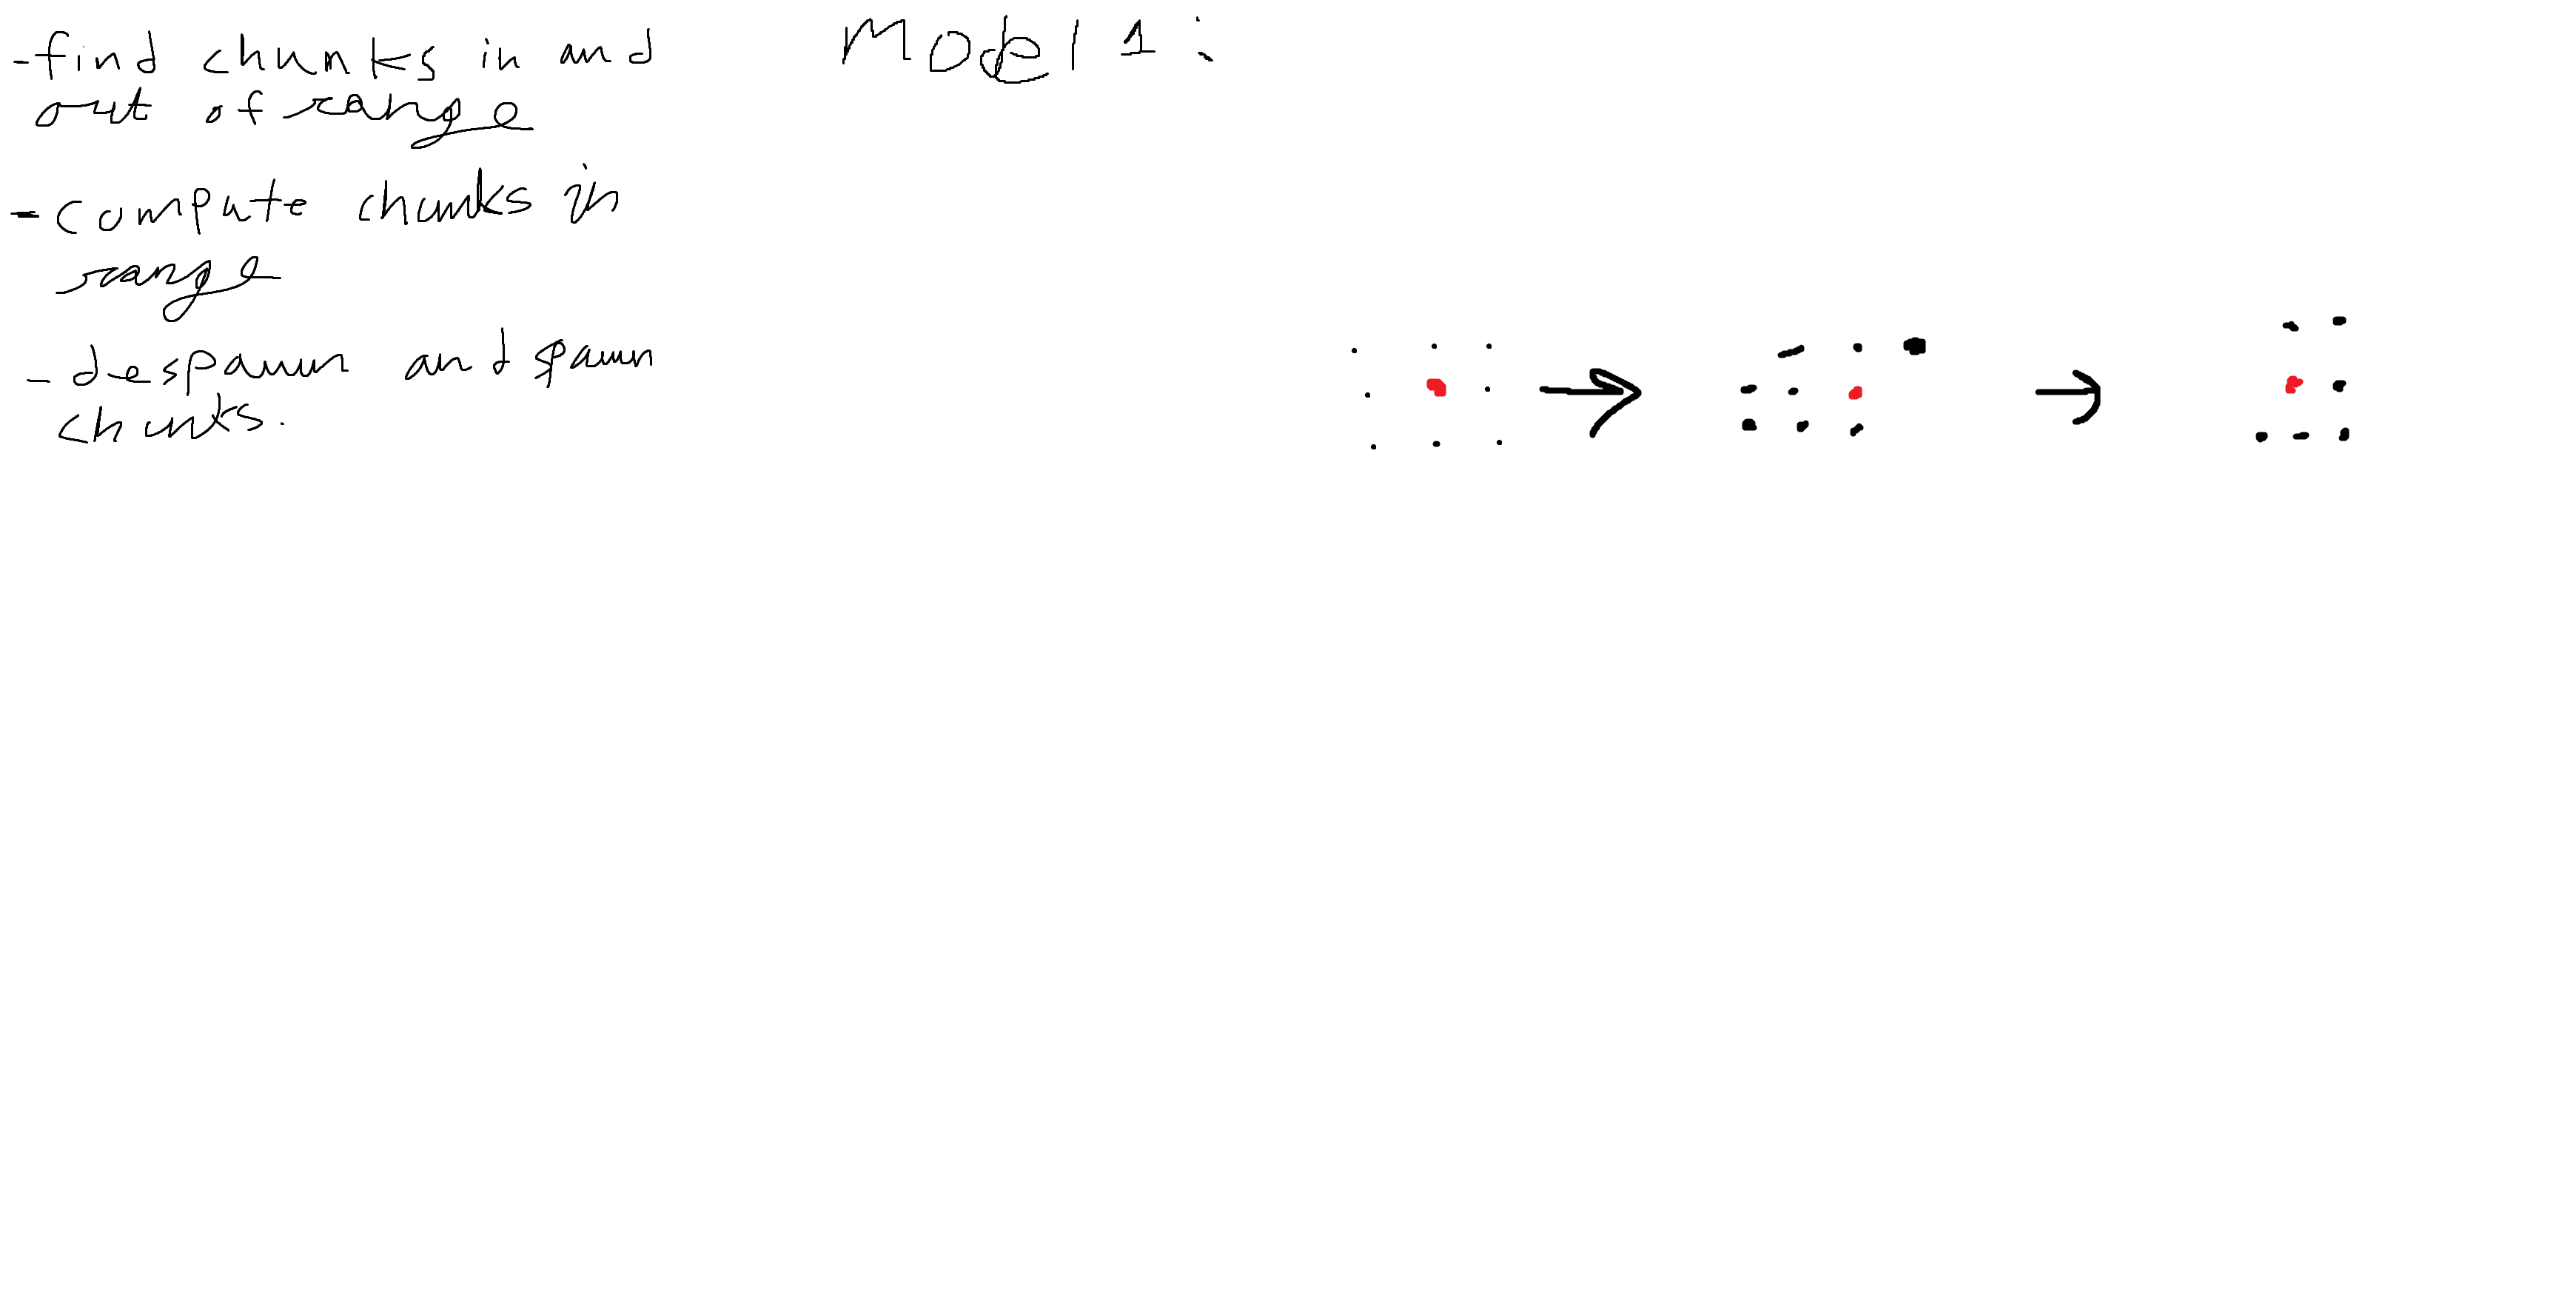 -find chunks in and
out of range
- compute chunks in
range
- despawn and spawn
chunks.
Model 1: